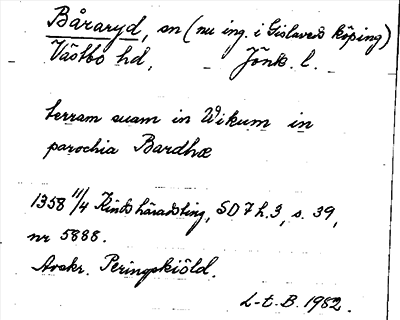 Båraryd, sn (nu ing. i Gislaved köping)
Västbo hd, Jönk. l.
terram suam in Wikum in
parochia Bardhæ
1358 11/4 Kinds häradsting, SD 7 h.3, s. 39,
nr 5888.
Avskr. Peringskiöld.
L-t. B. 1982.